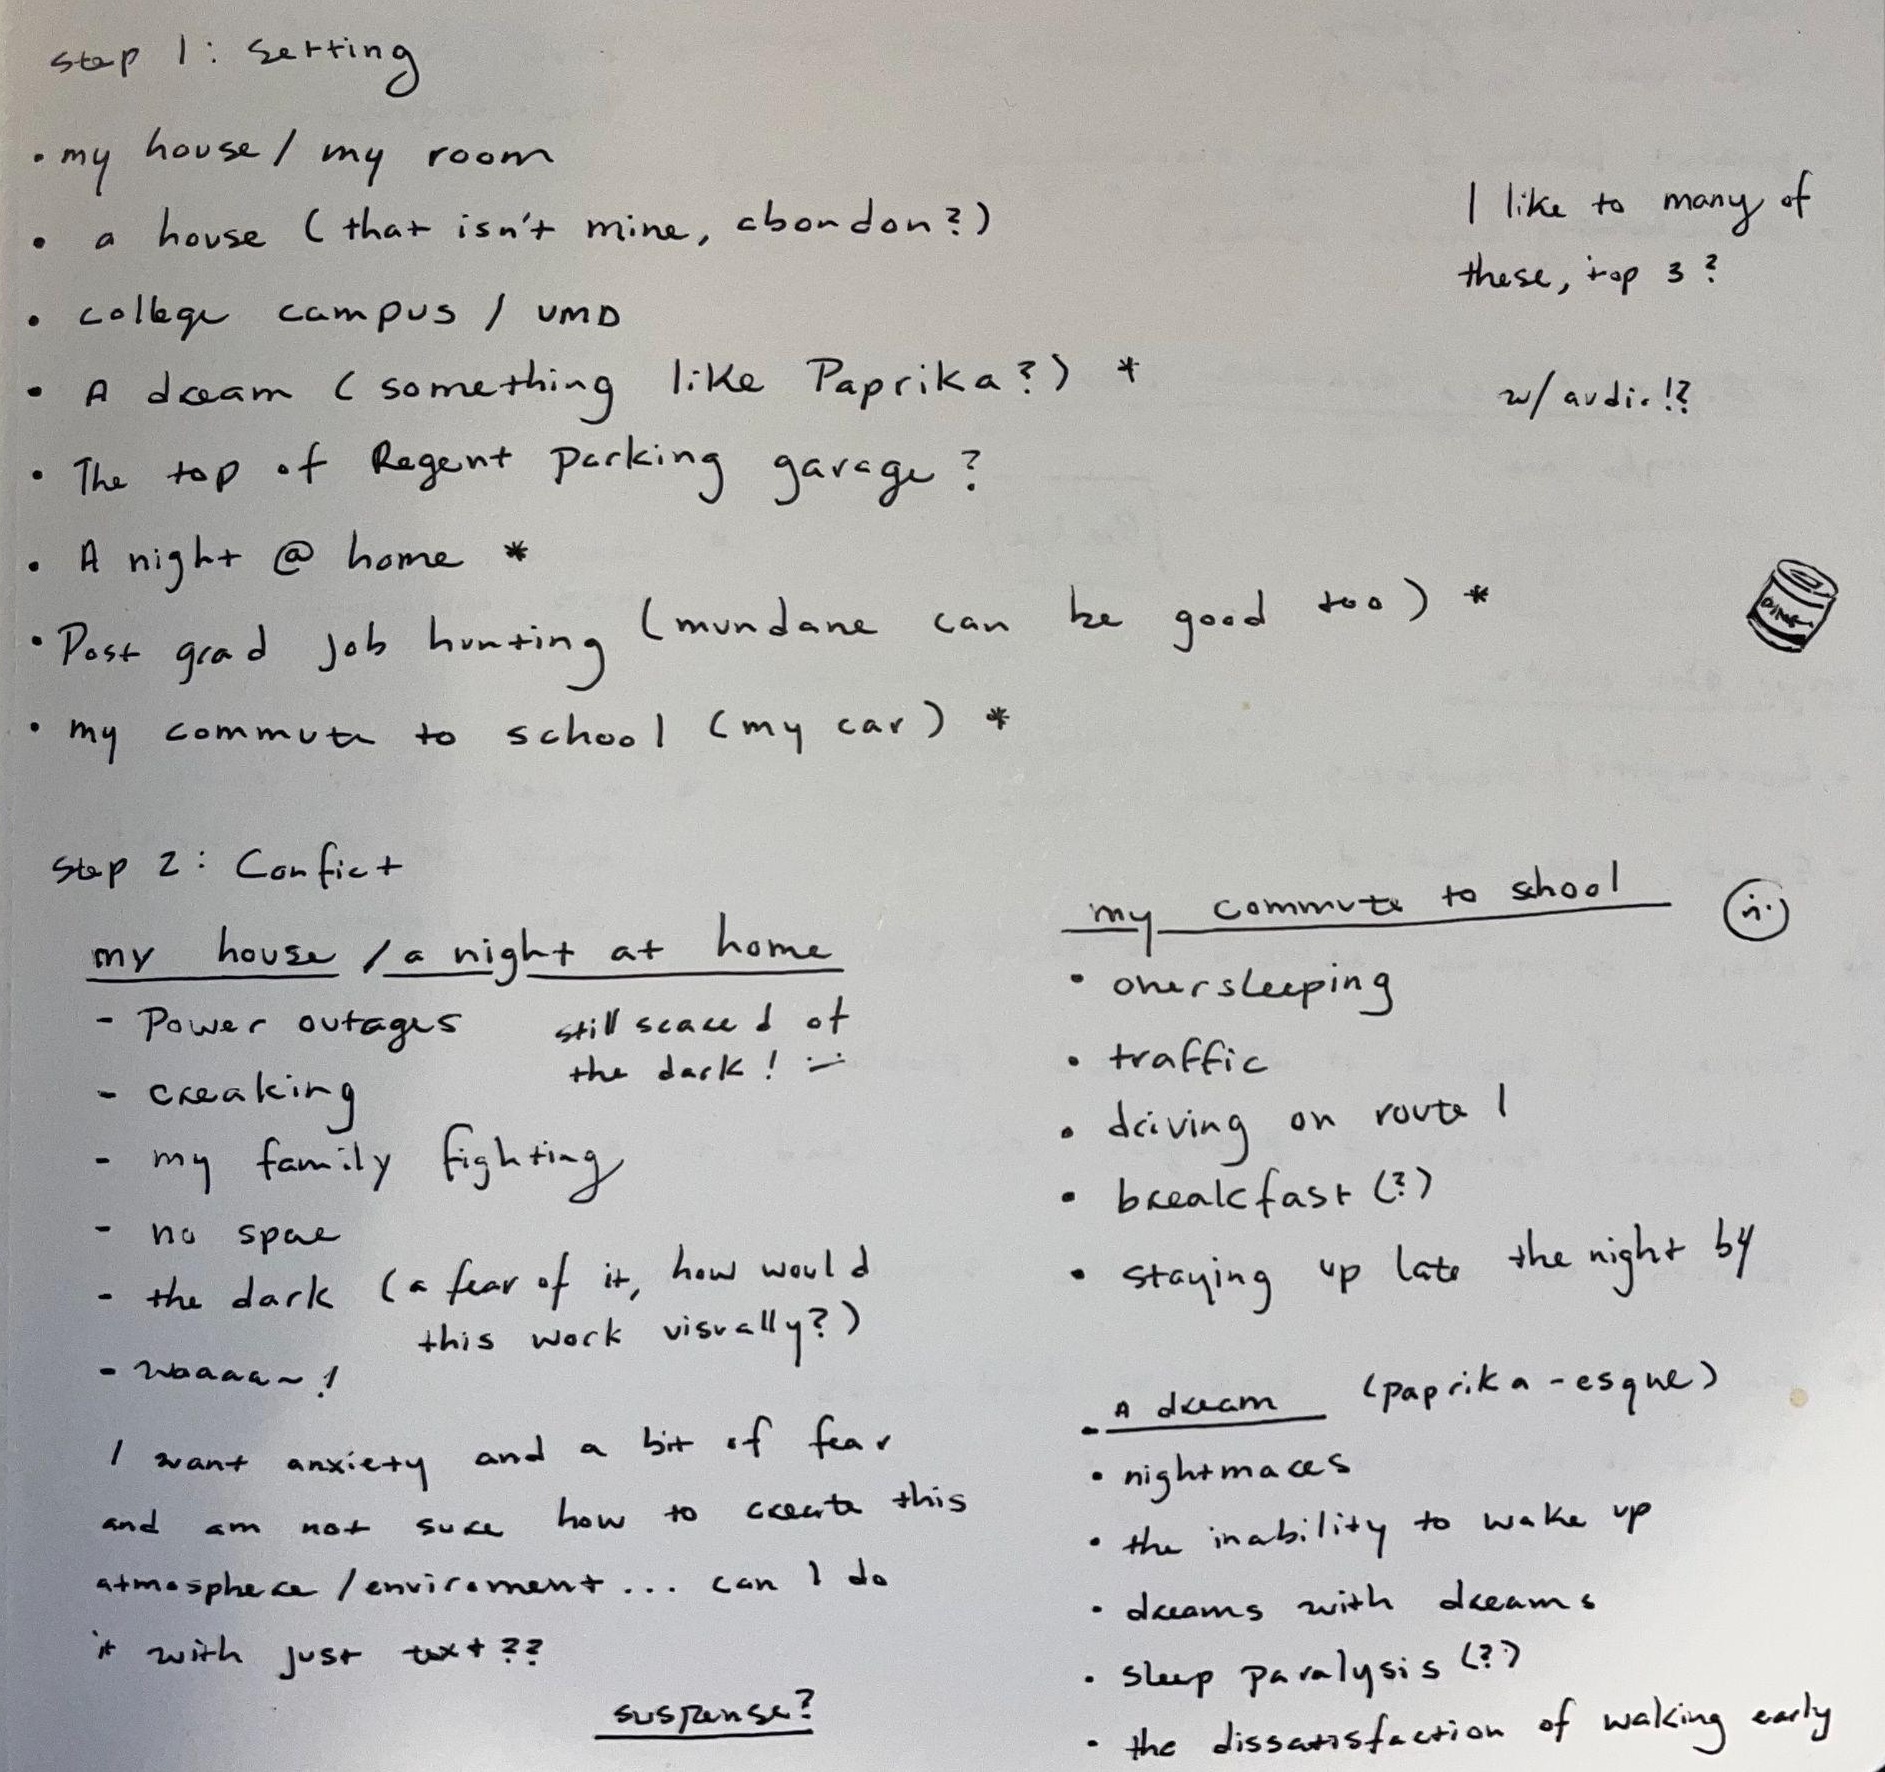 Step 1: Setting
• my house / my room
• a house (that isn't mine, abondon?)
• college campus / UMD
• A dream (something like Paprika?) *
• The top of Regent parking garage?
• A night @ home *
• Post grad job hunting (mundane can be good too) *
• my commute to school (my car) *
I like to many of
these, top 3?
w/ audio!?
Step 2: Confict
my house / a night at home
- Power outages
still scared of
the dark!
- creaking
- my family fighting
- no spae
- the dark (a fear of it, how would
this work visually?)
- waaaa~!
I want anxiety and a bit of fear
and am not sure how to create this
atmosphere / enviroment... can I do
it with just text??
suspense?
my commute to school
• oversleeping
• traffic
• driving on route 1
• breakfast (?)
• staying up late the night by
- A dream (paprika-esque)
• nightmares
• the inability to wake up
• dreams with dreams
• sleep paralysis (?)
• the dissatisfaction of waking early